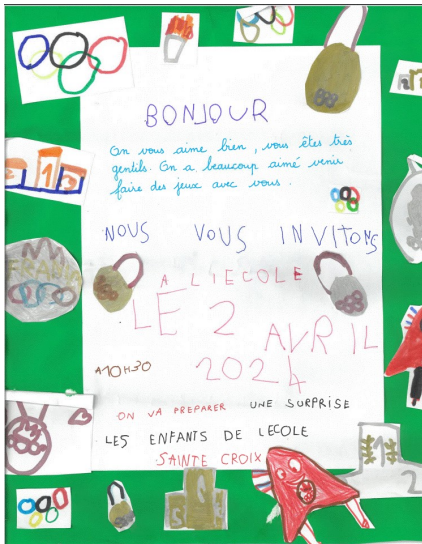 BONJOUR
On vous aime bien, vous êtes très
gentils. On a beaucoup aimé venir
faire des jeux avec vous.
NOUS VOUS INVITONS
A L'IECOLE
LE 2 AVRIL
2024
A10H30
ON VA PREPARER UNE SURPRISE
LES ENFANTS DE LECOLE
SAINTE CROIX
1
FRANCE
1
2